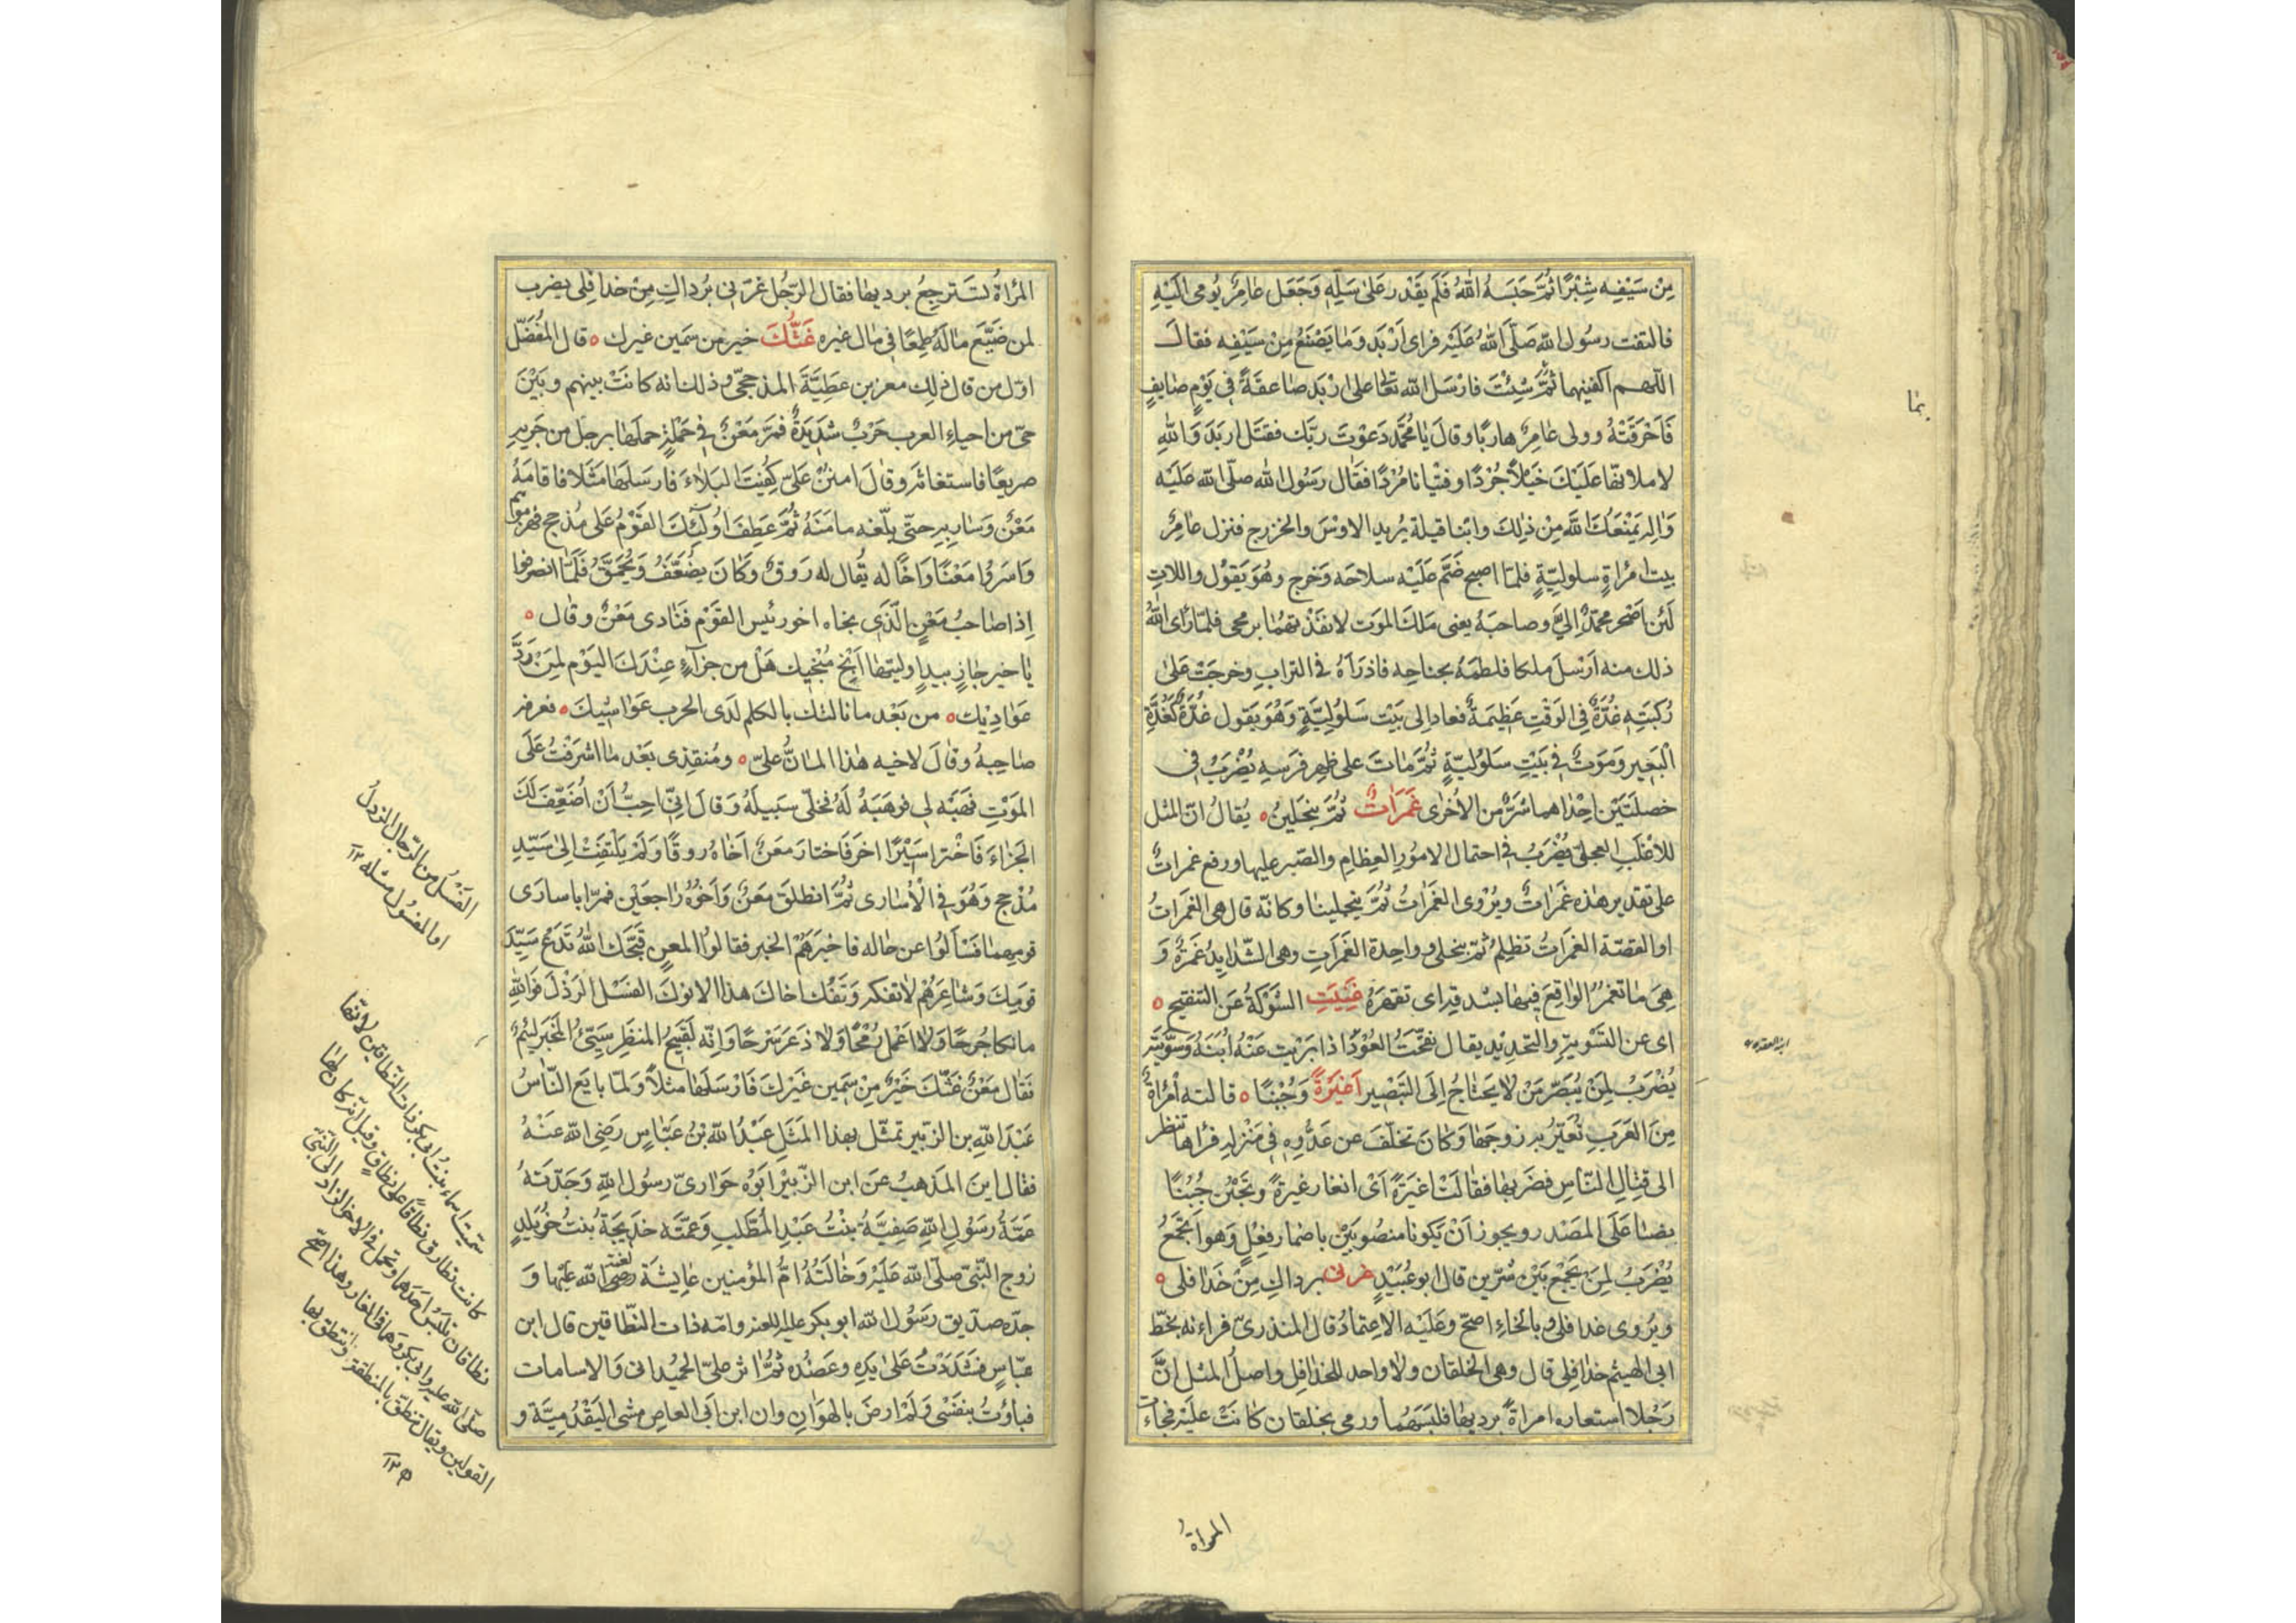 مِنْ سَيْفِه شِبْرًا ثُمَّ حَبَسَهُ اللهُ فَلَم يَقْدِر عَلىٰ سَلِّهِ وَجَعَل عَامِرٌ يُومى اِلَيْهِ
فالتفت رسُول الله صَلّى اللهُ عَلَيْه فراى اَرْبَد وَمَا يَصْنَعُ مِنْ سَيْفِه فقالَ
اللّهم اكفنيهما ثمَّ شِئْتَ فارْسَل الله تعالى على ارْبَد صَاعقَةً فى يَوْمٍ صَايفٍ
فَاَحْرَقَتْهُ وولى عَامِرٌ هاربًا وقالَ يَا مُحَمَّد دَعَوْتَ رَبَّك فقتَل اربَدَ وَاللهِ
لاملانّها عَلَيْكَ خَيْلًا جُرْدًا وفتْيانًا مُرْدًا فقَال رَسُول الله صلّى الله عَلَيْه
وَاله يَمْنَعُكَ اللهُ مِنْ ذٰلِكَ وابْنا قيلة يُريد الاوْسَ والخزرج فنزل عَامِرٌ
بيت امْراةٍ سلوليّةٍ فلمّا اصبح ضَمَّ عَلَيْه سلاحَه وَخرج وهُوَ يَقوْل واللاتِ
لَئن اَصْحر محمّدٌ اِلَيَّ وصاحبَهُ يعنى مَلَك الموَت لانفذْتهُمَا برمحى فلمّا رَاى اللهُ
ذلك منه اَرْسَل ملكا فلطمَهُ بجناحِه فاذرَاهُ فى الترابِ وخرجَتْ عَلىٰ
رُكبَتِه غُدَّةٌ فى الوَقْتِ عَظِيمَةٌ فعاد اِلى بَيْت سَلُولِيَّةٍ وَهُوَ يَقول غُدَّةٌ كَغُدَّةِ
الْبَعِير وَمَوَتٌ فى بَيْتِ سَلُوليّةٍ ثُمَّ مَاتَ على ظهر فَرَسِهِ يُضْرَبُ فى
خصلَتَيْن اِحْدٰاهما شرٌّ من الاُخرٰى غَمَرَاتٌ ثُمَّ ينجَلينَ ٥ يُقالُ انّ المثل
للاغْلَبِ العجلىّ يُضْرَبُ فى احتمال الامُورِ العِظامِ والصّبر عليها ورفع غمراتٌ
على تقدير هٰذه غَمَرَاتٌ ويُرْوى الغَمَرَاتُ ثُمَّ ينجلينا وكانّه قال هى الغَمَرَاتُ
او القصّة الغمرَاتُ تظلمُ ثمّ ينجلى وواحدة الغَمَراتِ وهى الشّدايدُ غَمرَةٌ وَ
هِىَ مَا تغمُر الواقِعَ فيهَا بشدّتِه اى تقهَرَهُ غَنِيَتِ الشَّوْكَةُ عَن التنقيحِ ٥
اى عن التَّسْوِيةِ والتّحدِيْدِ يقال نقَّحْتَ العُوْدَ اذا بَرَيْت عَنْهُ اُبَنَهُ وسَوَّيْتَهُ
يُضْرَبُ لِمَنْ يُبَصِّرُ مَنْ لا يَحتاجُ اِلَى التَّبْصِيرِ اَغَيْرَةً وَجُبْنًا ٥ قالته اُمْرَاةٌ
مِنَ العَرَبِ تُعَيِّرُ به زوجَهَا وَكانَ تخلّفَ عن عَدُوِّهِ فى مَنْزِلِه فرَاها تنظر
الى قتٰالِ النّاسِ فضَرَبهَا فقَالَتْ اَغيَرَةً اَىْ اتغار غَيرَةً وَتَجْبُن جُبْنًا
نصبا عَلَى المَصْدر ويجوز اَنْ يَكونا منصُوبَيْن باضمار فِعْلٍ وَهوا تجْمَعُ
يُضْرَبُ لِمَنْ يَجْمَعُ بَيْن شَرّين قال ابوعُبَيْدٍ غرنى بردَاكِ مِنْ خَدَافلى ٥
ويُروى غدافلى وبالخاءِ اصحّ وعَلَيْه الاعتمادُ قال المنذرىّ قراءته بخطّ
ابى الهيثم خدافِلى قال وهى الخلقان ولا واحد للخدافِل واصلُ المثل انَّ
رَجُلا استعار امراةً برديها فلبسَهُما ورمى بخلقان كانتْ علَيْه فجاءَت
المرْاةُ
بما
المرْاةُ تستَرجِعُ برديها فقال الرّجُل غرّنى بُرداكِ مِنْ خدافِلى يضرب
لمن ضَيَّعَ مٰالَهُ طمعًا فى مٰال غيره غَثُّكَ خير من سَمين غيرك ٥ قال المُفضّل
اوّل من قال ذلِك معن بن عَطِيَّةَ المذحجىّ وذلك انه كانَتْ بينهم وبَيْنَ
حىّ من احياءِ العرب حَرْبٌ شديدَةٌ فمرَّ مَعْنٌ فى حَمْلَةٍ حملَهَا برجل من
صريعًا فاستغاثَه وقالَ امنُنْ عَلَىَّ كُفِيتَ البَلاءَ فارسَلهَا مَثَلا فاقامَهُ
مَعْنٌ وَسَار به حتّى بلّغه مامنَهُ ثُمَّ عَطفَ اُولٰئِكَ القَوْمُ عَلى مُذحج فهزموا
وَاسَرُوا مَعْنًا وَاخًا له يُقال له رَوقٌ وكَانَ يُضَعَّفُ وَيُحَمَّقُ فلَمّا انصرفوا
اِذا صَاحبُ مَعْنٍ الّذى نجاه اخو رئيس القَوْم فَنَادى مَعْنٌ وقال ٥
يا خير جازٍ بيدٍ اوليتهٰا اَنْجِ مُنْجِيك هَلْ من جزآءٍ عِنْدَكَ اليَوْم لِمَنْ رَدَّ
عَوَادِيْك ٥ من بَعْد ما نالتك بالكلم لدَى الحرب غوَاشيك ٥ فعرفه
صَاحِبهُ وقَالَ لاخيه هٰذا المانُّ علىَّ ٥ ومُنقذى بَعْد مٰا اشرَفْتُ عَلَى
الموَتِ فهَبْه لى فوهَبَهُ لَهُ فخلّى سَبيلَهُ وَقالَ انِّى احِبُّ اَنْ اُضَعِّفَ لَكَ
الجَزاءَ فَاخْتر اسَيْرًا اخر فَاختار مَعنٌ اَخَاهُ روقًا وَلَمْ يَلتفِتْ اِلىٰ سَيِّدِ
مُذْحج وَهُوَ فى الْاُسَارى ثُمَّ انطلَقَ مَعنٌ وَاَخُوْهُ رَاجعَيْنِ فمرّا باسارَى
قومِهمَا فسَاَلوُا عن حَاله فاخبَرَهُمْ الخبر فقالوُا لمعنٍ قبَّحَك اللهُ تدَعُ سَيِّدَ
قومِكَ وَشاعِرَهُم لا تفكّه وَتَفُكّ اخاكَ هذا الانوَكَ الفسْلَ الرّذْلَ فوَاللهِ
ما نكا جُرحًا وَلا اعْمل رُمْحًا وَلا ذعَر سَرحًا وَانّه لَقَبيحُ المنظَر سَيّئُ المَخبَر لئيمٌ
فقال مَعنٌ غثّكَ خَيْرٌ مِنْ سَمين غَيْركَ فَارْسَلَها مثلًا وَلمّا بايَع النّاسُ
عَبْدَ اللهِ بن الزّبير تمثّل بهذا المَثَلِ عَبْدُ الله بْنُ عبّاسٍ رَضِىَ الله عَنْهُ
فقال اين المَذهبُ عَن ابن الزُّبَيْر ابَوُه حَوَارىّ رسُول اللهِ وَجَدّتهُ
عَمّةُ رسُولِ اللهِ صَفِيَّةُ بنْتُ عَبْدِ المُطّلبِ وَعَمّتَه خَدِيْجَةُ بنْتُ خُوَيْلِدٍ
زوج النّبىّ صلّى الله عَلَيْه وَخَالتُهُ اُمُّ المؤمنين عَايشَة رضى الله عَلَيْها وَ
جدّه صدّيق رَسُول الله ابوبكر وامّه ذات النّطاقين قال ابن
عبّاسٍ فشَدَدْتُ عَلىٰ يَدِه وعَضُدِه ثُمَّ اٰثر علىّ الحُميْدَاتِ وَالاسامات
فباَوْتُ بنَفْسى وَلَمْ ارضَ بالهَوَانِ وان ابن اَبى العاصِ مشى اليَقْدُمِيّة و
الفَسْلُ من الرّجال الرّذلُ
او المفسُول مثله ١٢
سمّيت اسماء بنتُ ابى بكر ذات النّطاقين لانّها
كانت تطارق نطاقًا على نطاقٍ وقيل انّه كان لها
نطاقان تلبَسُ احَدَهما وتحمل فى الاخر الزاد الى النّبىّ
صلّى الله عليه وابى بكر وهما فى الغار وهذا اصحّ
القولين ويقال تنطّق بالمنطقة وانتطق بها
١٢